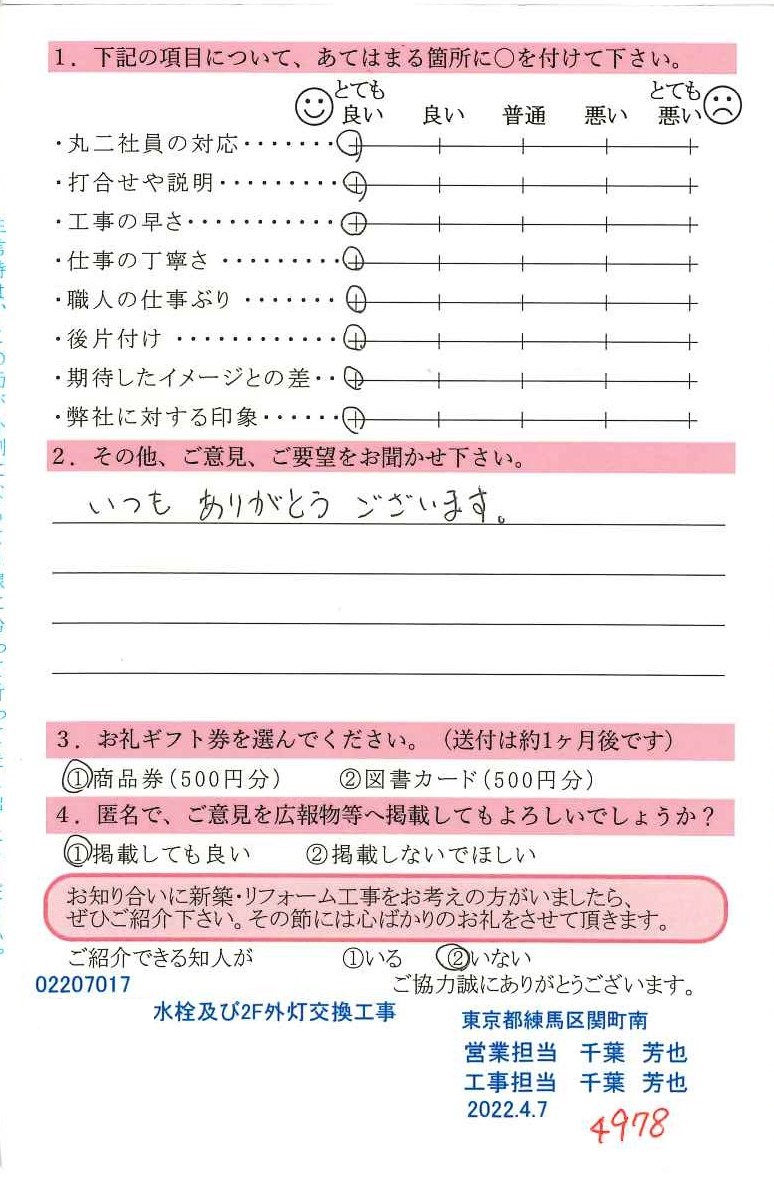 1．下記の項目について、あてはまる箇所に○を付けて下さい。
とても良い 良い 普通 悪い とても悪い
・丸二社員の対応・・・・・・・
・打合せや説明・・・・・・・・・
・工事の早さ・・・・・・・・・・・
・仕事の丁寧さ ・・・・・・・・・
・職人の仕事ぶり ・・・・・・・
・後片付け ・・・・・・・・・・・・
・期待したイメージとの差・・
・弊社に対する印象・・・・・・
2．その他、ご意見、ご要望をお聞かせ下さい。
いつも ありがとう ございます。
3．お礼ギフト券を選んでください。（送付は約1ヶ月後です）
①商品券（500円分） ②図書カード（500円分）
4．匿名で、ご意見を広報物等へ掲載してもよろしいでしょうか？
①掲載しても良い ②掲載しないでほしい
お知り合いに新築・リフォーム工事をお考えの方がいましたら、
ぜひご紹介下さい。その節には心ばかりのお礼をさせて頂きます。
ご紹介できる知人が ①いる ②いない
02207017 ご協力誠にありがとうございます。
水栓及び2F外灯交換工事
東京都練馬区関町南
営業担当 千葉 芳也
工事担当 千葉 芳也
2022.4.7
4978